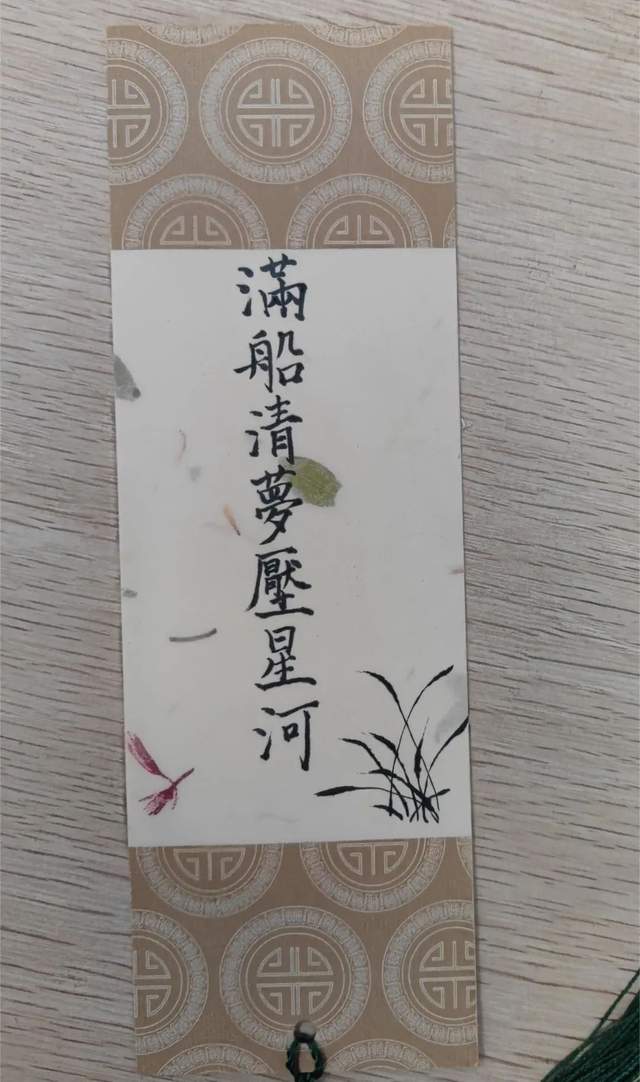 滿船清夢壓星河